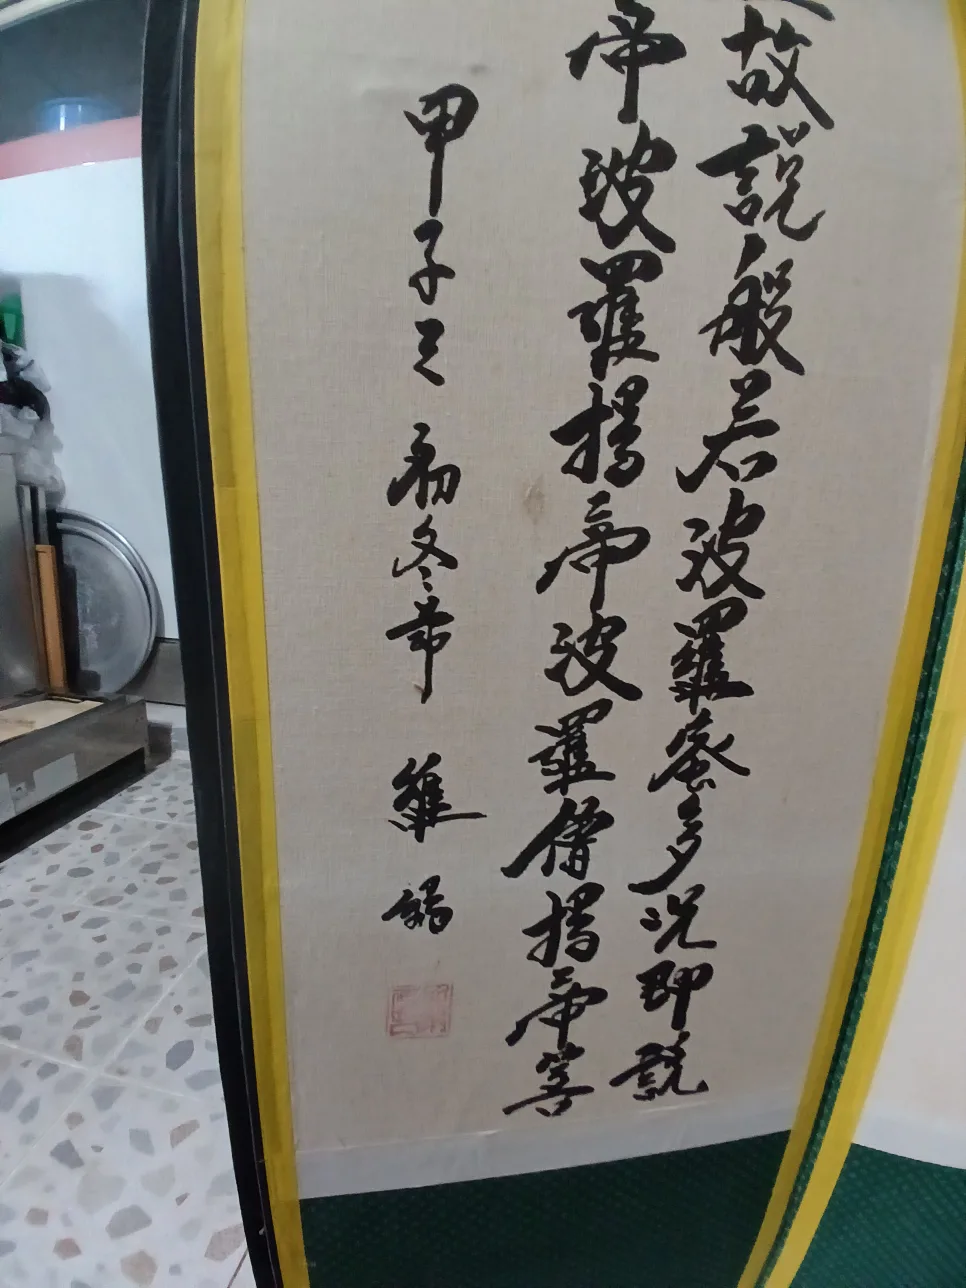 故說般若波羅蜜多況即說
帝波羅揭帝波羅僧揭帝菩
甲子之初冬節